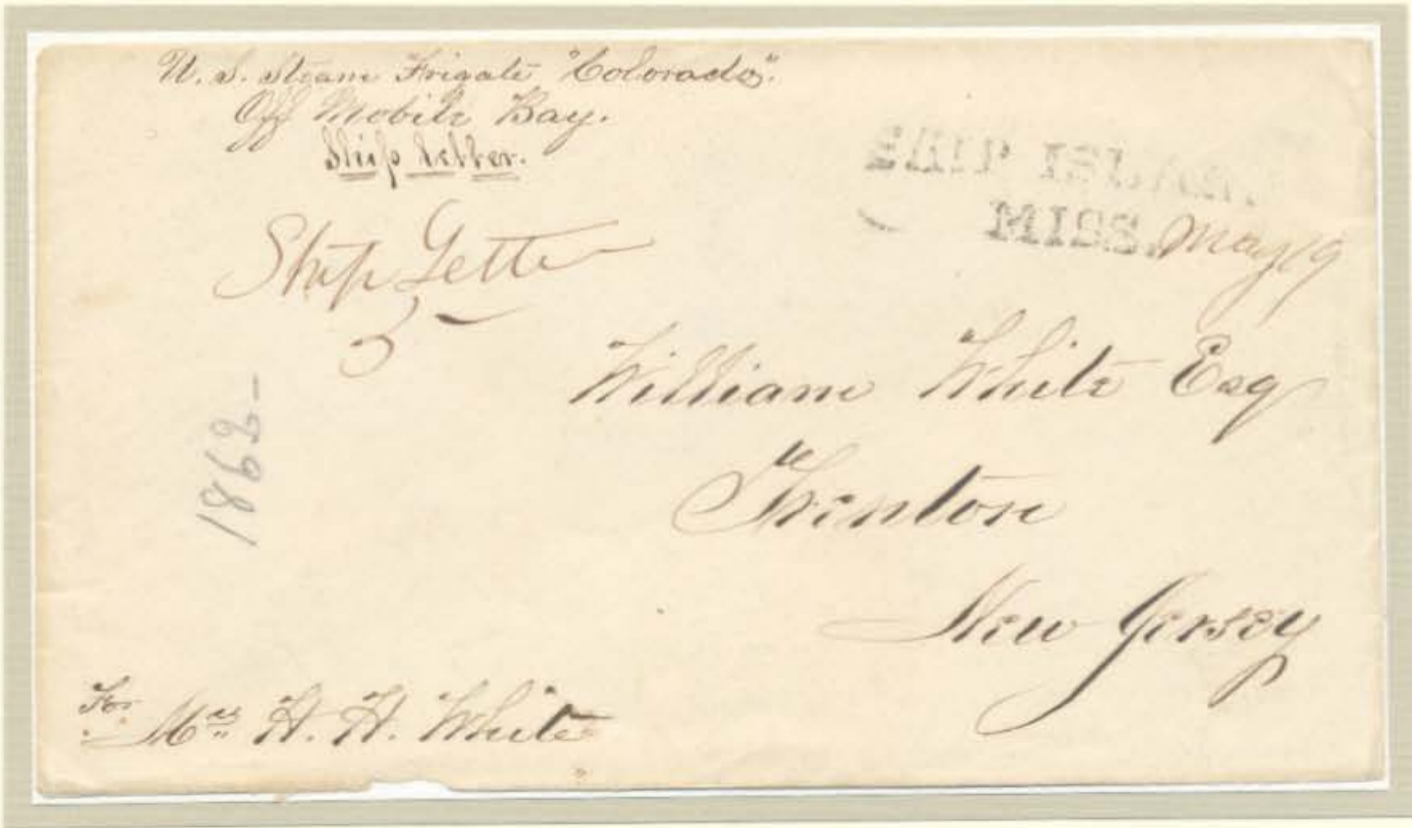 U. S. Steam Frigate "Colorado".
Off Mobile Bay.
Ship Letter.
SHIP ISLAND.
MISS. May 19
Ship Letter
5
William White Esq
Trenton
New Jersey
1862-
For
Mrs H. H. White